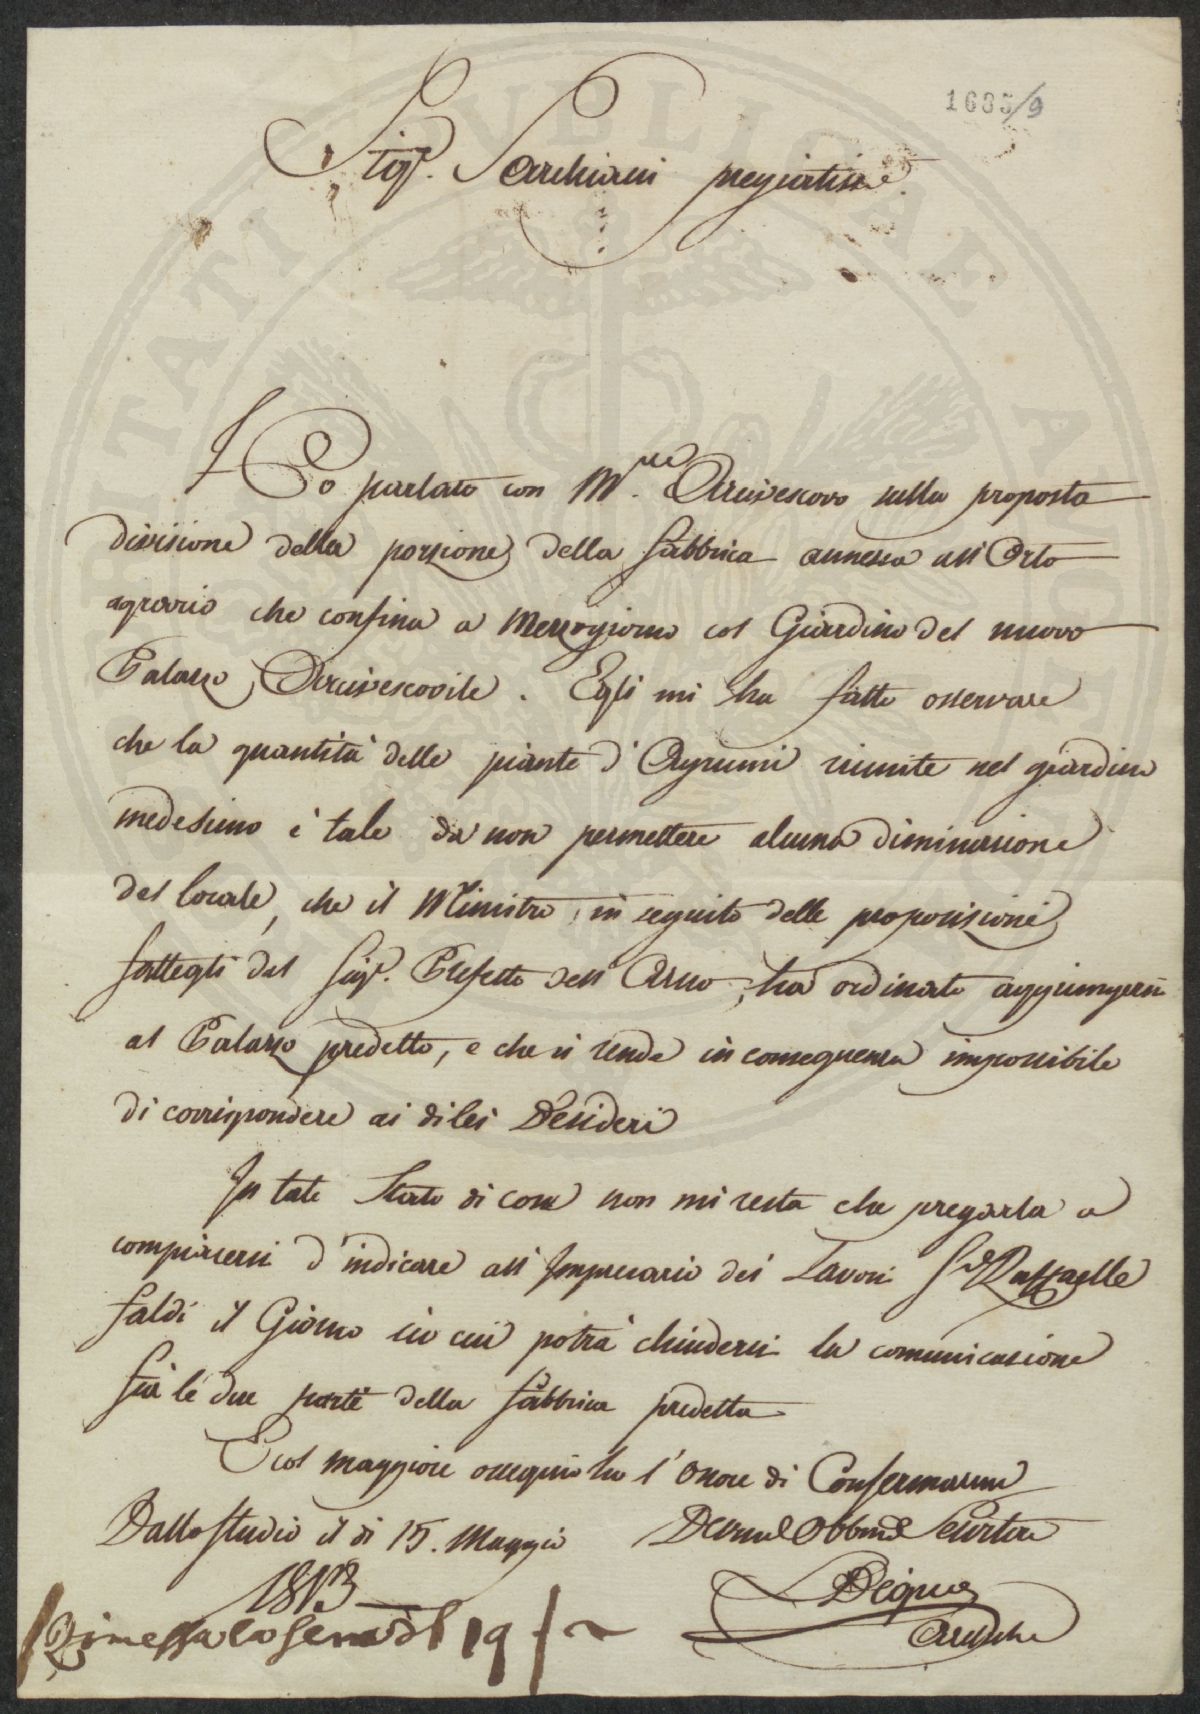 1685/9
Sigr. Sarchiani pregiatissme.
Ho parlato con Mre. Arcivescovo sulla proposta
divisione della porzione della fabbrica annessa all'Orto
agrario che confina a Mezzogiorno col Giardino del nuovo
Palazzo Arcivescovile. Egli mi ha fatto osservare
che la quantità delle piante d'Agrumi riunite nel giardino
medesimo è tale da non permettere alcuna diminuzione
del locale, che il Ministro, in seguito delle proposizioni
fattegli dal Sigr. Prefetto dell'Arno, ha ordinato aggiungersi
al Palazzo predetto, e che si rende in conseguenza impossibile
di corrispondere ai di lei Desideri
In tale Stato di cose non mi resta che pregarla a
compiacersi d'indicare all'Impresario dei Lavori Sr. Raffaelle
Faldi il Giorno in cui potrà chiudersi la comunicazione
frà le due parti della fabbrica predetta
E col maggiore ossequio ho l'onore di Confermarmi
Dallo Studio il dì 15. Maggio
1813
Devmo Obbmo Servitore
Del Rosso
Architetto
Rimessa la sera del 19
VBLICAE
TATI